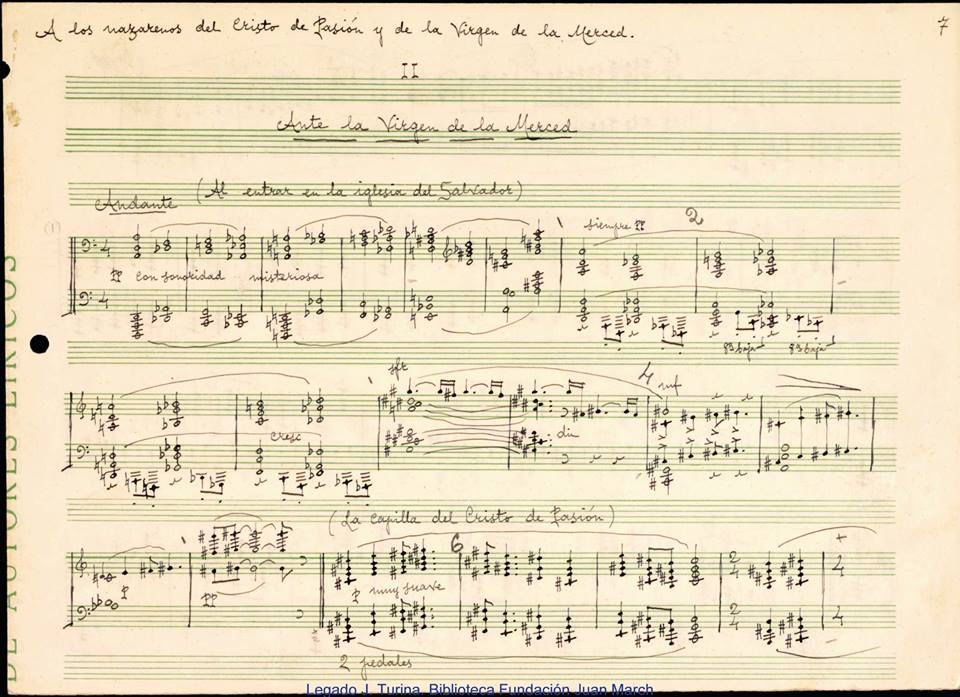 A los nazarenos del Cristo de Pasión y de la Virgen de la Merced.
7
II
Ante la Virgen de la Merced
Andante (Al entrar en la iglesia del Salvador)
(1)
siempre PP 2
4 PP con sonoridad misteriosa
4
8ª baja 8ª baja
sft 4 mf
cresc dim
(La capilla del Cristo de Pasión)
6 2 4 4
P PP P muy suave
2 4 4
2 pedales
DE AUTORES LIRICOS
Legado J. Turina. Biblioteca Fundación Juan March